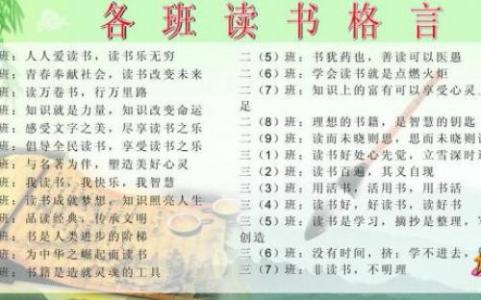 各班读书格言
班：人人爱读书，读书乐无穷
班：青春奉献社会，读书改变未来
班：读万卷书，行万里路
班：知识就是力量，知识改变命运
班：感受文字之美，尽享读书之乐
班：倡导全民读书，享受读书之乐
班：与名著为伴，塑造美好心灵
班：我读书，我快乐，我智慧
班：读书成就梦想，知识照亮人生
班：品读经典，传承文明
班：书是人类进步的阶梯
班：为中华之崛起而读书
班：书籍是造就灵魂的工具
二（5）班：书犹药也，善读可以医愚
二（6）班：学会读书就是点燃火炬
二（7）班：知识上的富有可以享受心灵上
足
二（8）班：理想的书籍，是智慧的钥匙
二（9）班：读而未晓则思，思而未晓则
三（1）班：读书好处心先觉，立雪深时道
三（2）班：读书百遍，其义自现
三（3）班：用活书，活用书，用书活
三（4）班：好读书，读好书，读书好
三（5）班：读书是学习，摘抄是整理，写
创造
三（6）班：没有时间，挤；学不进去，
三（7）班：非读书，不明理